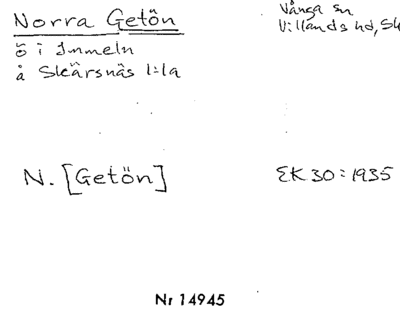 Norra Getön
Vånga sn
ö i Immeln
Villands hd, Sk
å Skärsnäs 1:1a
N. [Getön]
EK 30:1935
Nr 14945